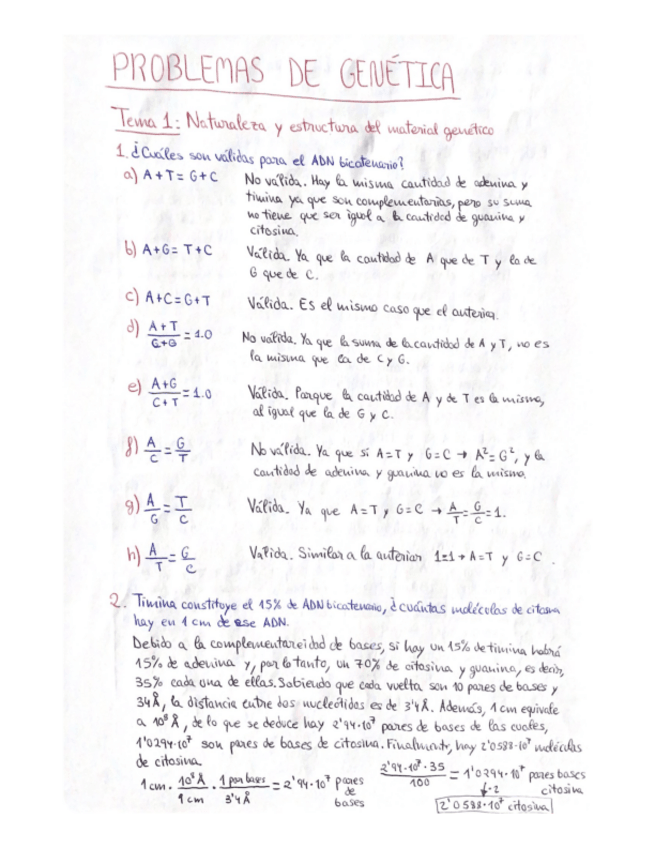 PROBLEMAS DE GENÉTICA
Tema 1: Naturaleza y estructura del material genético
1. ¿Cuáles son válidas para el ADN bicatenario?
a) A+T = G+C No válida. Hay la misma cantidad de adenina y
timina ya que son complementarias, pero su suma
no tiene que ser igual a la cantidad de guanina y
citosina.
b) A+G = T+C Válida. Ya que la cantidad de A que de T y la de
G que de C.
c) A+C = G+T Válida. Es el mismo caso que el anterior.
d) A+T / C+G = 1.0 No válida. Ya que la suma de la cantidad de A y T, no es
la misma que la de C y G.
e) A+G / C+T = 1.0 Válida. Porque la cantidad de A y de T es la misma,
al igual que la de G y C.
f) A/C = G/T No válida. Ya que si A=T y G=C → A²=G², y la
cantidad de adenina y guanina no es la misma.
g) A/G = T/C Válida. Ya que A=T y G=C → A/T = G/C = 1.
h) A/T = G/C Valida. Similar a la anterior 1=1 → A=T y G=C.
2. Timina constituye el 15% de ADN bicatenario, ¿cuántas moléculas de citosina
hay en 1 cm de ese ADN.
Debido a la complementareidad de bases, si hay un 15% de timina habrá
15% de adenina y, por lo tanto, un 70% de citosina y guanina, es decir,
35% cada una de ellas. Sabiendo que cada vuelta son 10 pares de bases y
34 Å, la distancia entre dos nucleótidos es de 3'4 Å. Además, 1 cm equivale
a 10⁸ Å, de lo que se deduce hay 2'94·10⁷ pares de bases de las cuales,
1'0294·10⁷ son pares de bases de citosina. Finalmente, hay 2'0588·10⁷ moléculas
de citosina.
1 cm · 10⁸ Å / 1 cm · 1 par bases / 3'4 Å = 2'94·10⁷ pares de bases
2'94·10⁷·35 / 100 = 1'0294·10⁷ pares bases citosina
↓·2
2'0588·10⁷ citosina